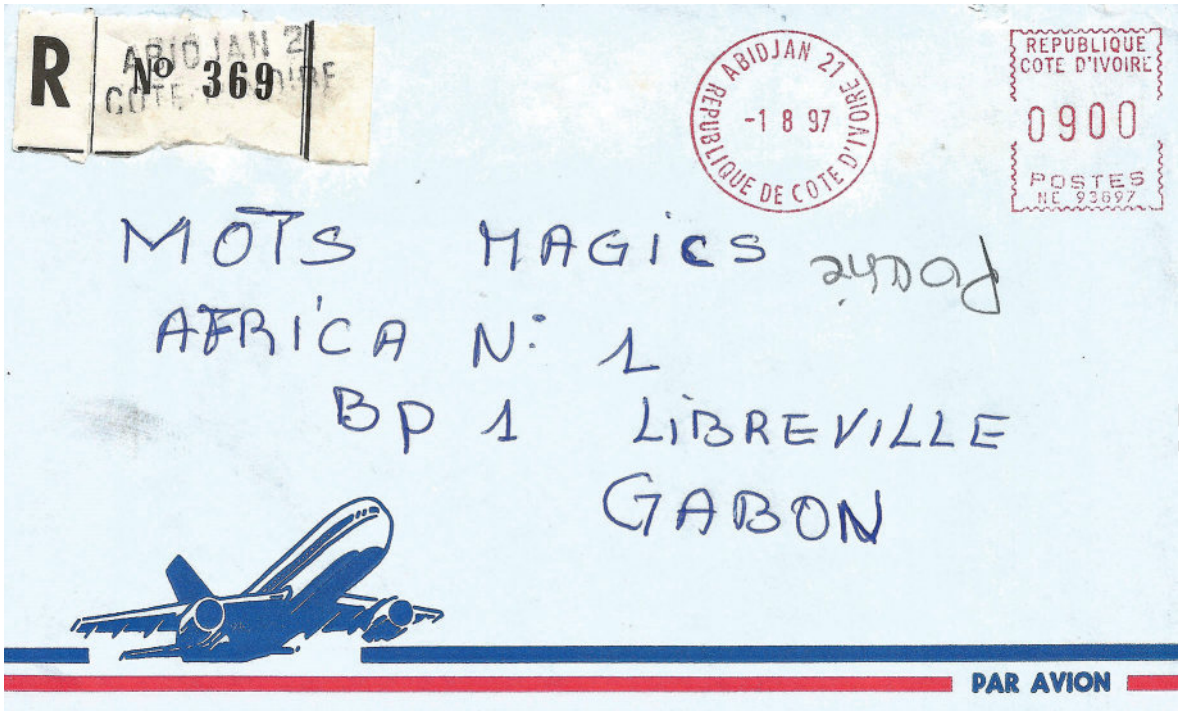 R
ABIDJAN 21
Nº 369
COTE D'IVOIRE
ABIDJAN 21
REPUBLIQUE DE COTE D'IVOIRE
-1 8 97
REPUBLIQUE
COTE D'IVOIRE
0900
POSTES
NE 93697
MOTS MAGICS
AFRICA N: 1
BP 1 LIBREVILLE
GABON
PAR AVION